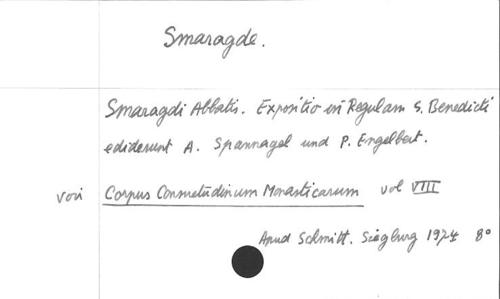 Smaragde.
Smaragdi Abbatis. Expositio in Regulam S. Benedicti
ediderunt A. Spannagel und P. Engelbert.
voir Corpus Consuetudinum Monasticarum vol VIII
Apud Schmitt. Siegburg 1974 8°